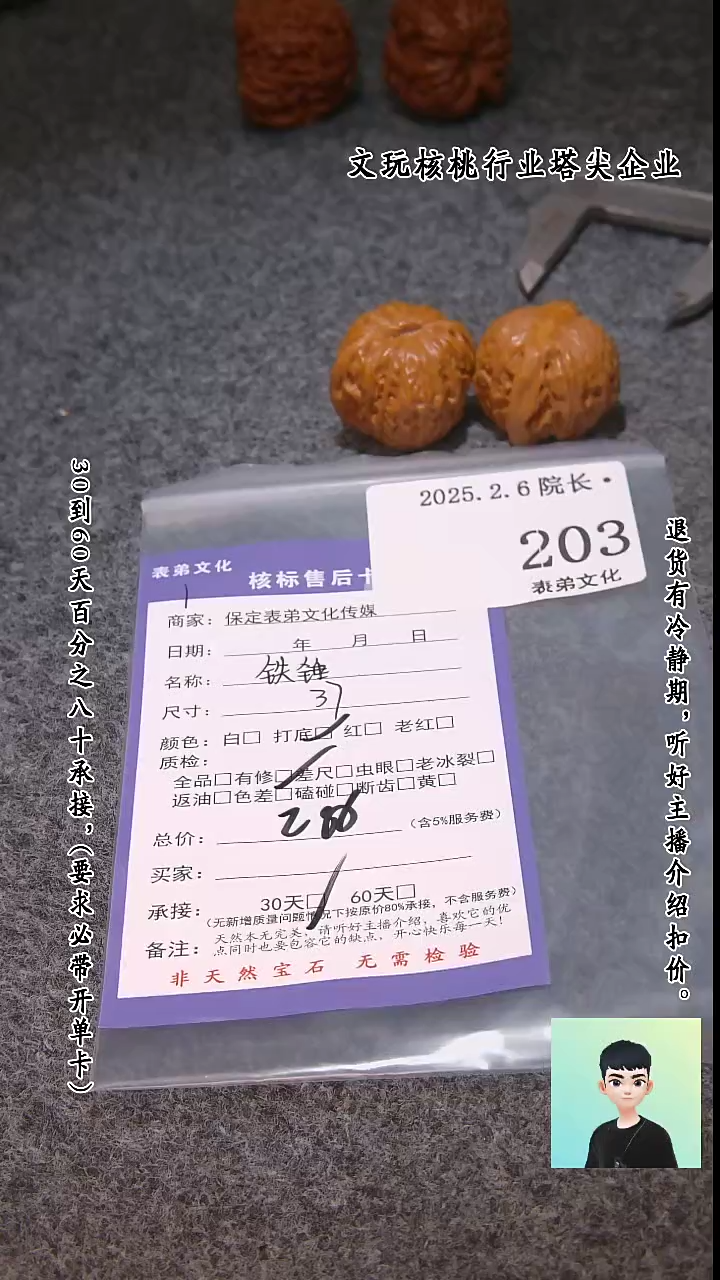 文玩核桃行业塔尖企业
30到60天百分之八十承接，（要求必带开单卡）
退货有冷静期，听好主播介绍扣价。
2025.2.6院长·
203
表弟文化
表弟文化
核标售后卡
商家：保定表弟文化传媒
日期： 年 月 日
名称：铁锤
尺寸：37
颜色：白□ 打底□ 红□ 老红□
质检：
全品□有修□差尺□虫眼□老冰裂□
返油□色差□磕碰□断齿□黄□
总价： （含5%服务费）
买家：
承接： 30天□ 60天□
（无新增质量问题情况下按原价80%承接，不含服务费）
备注：天然本无完美，请听好主播介绍，喜欢它的优
点同时也要包容它的缺点，开心快乐每一天！
非天然宝石 无需检验